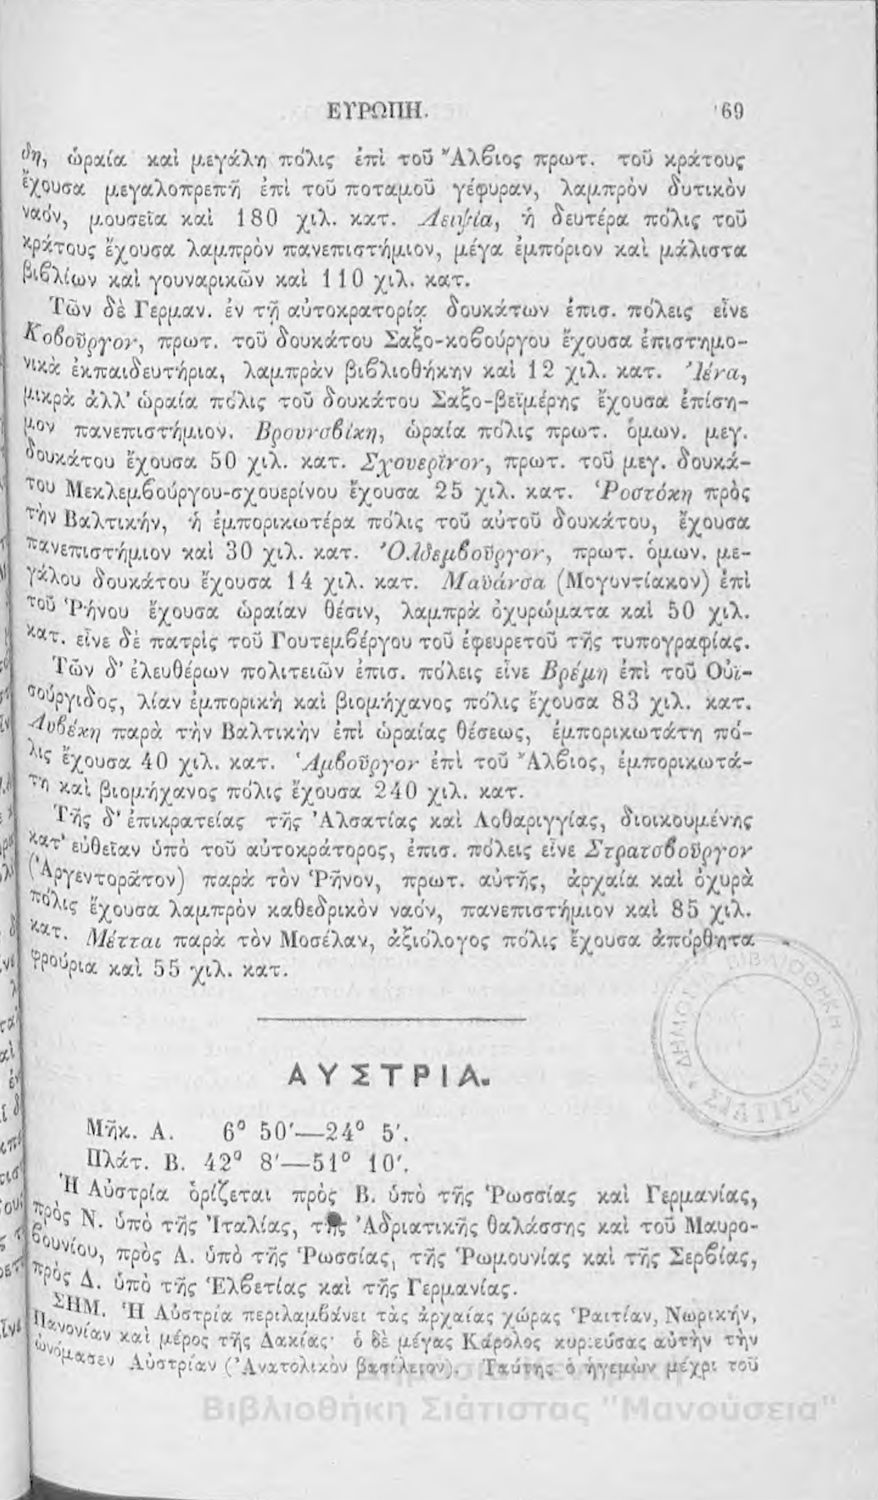 ΕΥΡΩΠΗ. 69
δη, ὡραία καὶ μεγάλη πόλις ἐπὶ τοῦ Ἄλβιος πρωτ. τοῦ κράτους
ἔχουσα μεγαλοπρεπῆ ἐπὶ τοῦ ποταμοῦ γέφυραν, λαμπρὸν δυτικὸν
ναόν, μουσεῖα καὶ 180 χιλ. κατ. Λειψία, ἡ δευτέρα πόλις τοῦ
κράτους ἔχουσα λαμπρὸν πανεπιστήμιον, μέγα ἐμπόριον καὶ μάλιστα
βιβλίων καὶ γουναρικῶν καὶ 110 χιλ. κατ.
Τῶν δὲ Γερμαν. ἐν τῇ αὐτοκρατορίᾳ δουκάτων ἐπισ. πόλεις εἶνε
Κοβοῦργον, πρωτ. τοῦ δουκάτου Σαξο-κοβούργου ἔχουσα ἐπιστημο-
νικὰ ἐκπαιδευτήρια, λαμπρὰν βιβλιοθήκην καὶ 12 χιλ. κατ. Ἰένα,
μικρὰ ἀλλ' ὡραία πόλις τοῦ δουκάτου Σαξο-βεϊμέρης ἔχουσα ἐπίση-
μον πανεπιστήμιον. Βρουνσβίκη, ὡραία πόλις πρωτ. ὁμων. μεγ.
δουκάτου ἔχουσα 50 χιλ. κατ. Σχουερῖνον, πρωτ. τοῦ μεγ. δουκά-
του Μεκλεμβούργου-σχουερίνου ἔχουσα 25 χιλ. κατ. Ῥοστόκη πρὸς
τὴν Βαλτικήν, ἡ ἐμπορικωτέρα πόλις τοῦ αὐτοῦ δουκάτου, ἔχουσα
πανεπιστήμιον καὶ 30 χιλ. κατ. Ὀλδεμβοῦργον, πρωτ. ὁμων. με-
γάλου δουκάτου ἔχουσα 14 χιλ. κατ. Μαϋάνσα (Μογυντίακον) ἐπὶ
τοῦ Ῥήνου ἔχουσα ὡραίαν θέσιν, λαμπρὰ ὀχυρώματα καὶ 50 χιλ.
κατ. εἶνε δὲ πατρὶς τοῦ Γουτεμβέργου τοῦ ἐφευρετοῦ τῆς τυπογραφίας.
Τῶν δ' ἐλευθέρων πολιτειῶν ἐπισ. πόλεις εἶνε Βρέμη ἐπὶ τοῦ Οὐϊ-
σούργιδος, λίαν ἐμπορικὴ καὶ βιομήχανος πόλις ἔχουσα 83 χιλ. κατ.
Λυβέκη παρὰ τὴν Βαλτικὴν ἐπὶ ὡραίας θέσεως, ἐμπορικωτάτη πό-
λις ἔχουσα 40 χιλ. κατ. Ἁμβοῦργον ἐπὶ τοῦ Ἄλβιος, ἐμπορικωτά-
τη καὶ βιομήχανος πόλις ἔχουσα 240 χιλ. κατ.
Τῆς δ' ἐπικρατείας τῆς Ἀλσατίας καὶ Λοθαριγγίας, διοικουμένης
κατ' εὐθεῖαν ὑπὸ τοῦ αὐτοκράτορος, ἐπισ. πόλεις εἶνε Στρατσβοῦργον
(Ἀργεντορᾶτον) παρὰ τὸν Ῥῆνον, πρωτ. αὐτῆς, ἀρχαία καὶ ὀχυρὰ
πόλις ἔχουσα λαμπρὸν καθεδρικὸν ναόν, πανεπιστήμιον καὶ 85 χιλ.
κατ. Μέτται παρὰ τὸν Μοσέλαν, ἀξιόλογος πόλις ἔχουσα ἀπόρθητα
φρούρια καὶ 55 χιλ. κατ.
ΔΗΜΟΣ ΒΙΒΛΙΟΘΗΚΗ ΣΙΑΤΙΣΤΗΣ
ΑΥΣΤΡΙΑ.
Μῆκ. Α. 6° 50'—24° 5'.
Πλάτ. Β. 42° 8'—51° 10'.
Ἡ Αὐστρία ὁρίζεται πρὸς Β. ὑπὸ τῆς Ῥωσσίας καὶ Γερμανίας,
πρὸς Ν. ὑπὸ τῆς Ἰταλίας, τῆς Ἀδριατικῆς θαλάσσης καὶ τοῦ Μαυρο-
βουνίου, πρὸς Α. ὑπὸ τῆς Ῥωσσίας, τῆς Ῥωμουνίας καὶ τῆς Σερβίας,
πρὸς Δ. ὑπὸ τῆς Ἑλβετίας καὶ τῆς Γερμανίας.
ΣΗΜ. Ἡ Αὐστρία περιλαμβάνει τὰς ἀρχαίας χώρας Ῥαιτίαν, Νωρικήν,
Πανονίαν καὶ μέρος τῆς Δακίας· ὁ δὲ μέγας Κάρολος κυριεύσας αὐτὴν τὴν
ὠνόμασεν Αὐστρίαν (Ἀνατολικὸν βασίλειον). Ταύτης ὁ ἡγεμὼν μέχρι τοῦ
Βιβλιοθήκη Σιάτιστας "Μανούσεια"